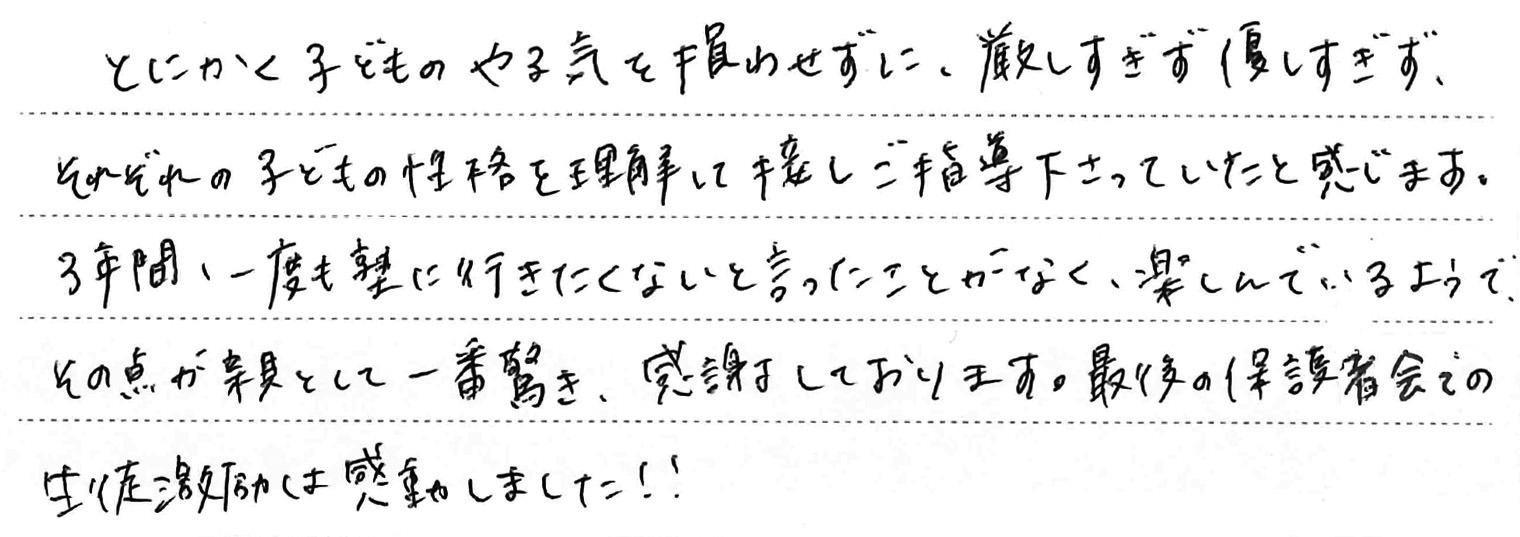 とにかく子どものやる気を損わせずに、厳しすぎず優しすぎず、
それぞれの子どもの性格を理解して接しご指導下さっていたと感じます。
3年間、一度も塾に行きたくないと言ったことがなく、楽しんでいるようで、
その点が親として一番驚き、感謝しております。最後の保護者会での
生徒激励は感動しました!!